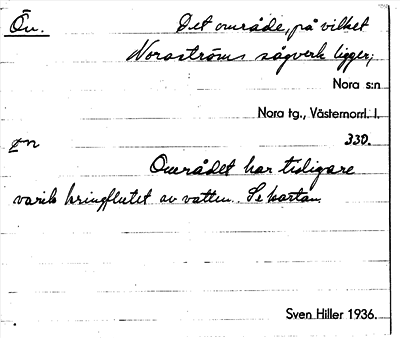 Ön. Det område, på vilket
Noraströms sågverk ligger;
Nora s:n
Nora tg., Västernorrl. l.
330.
Området har tidigare
varit kringflutet av vatten. Se kartan.
Sven Hiller 1936.